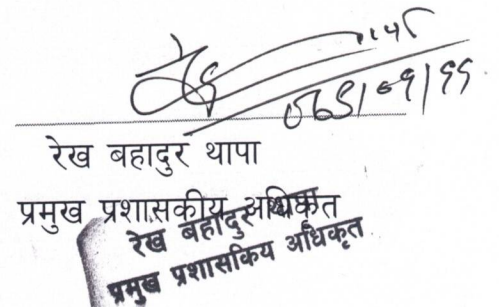 रेख बहादुर थापा
प्रमुख प्रशासकीय अधिकृत
रेख बहादुर थापा
प्रमुख प्रशासकिय अधिकृत